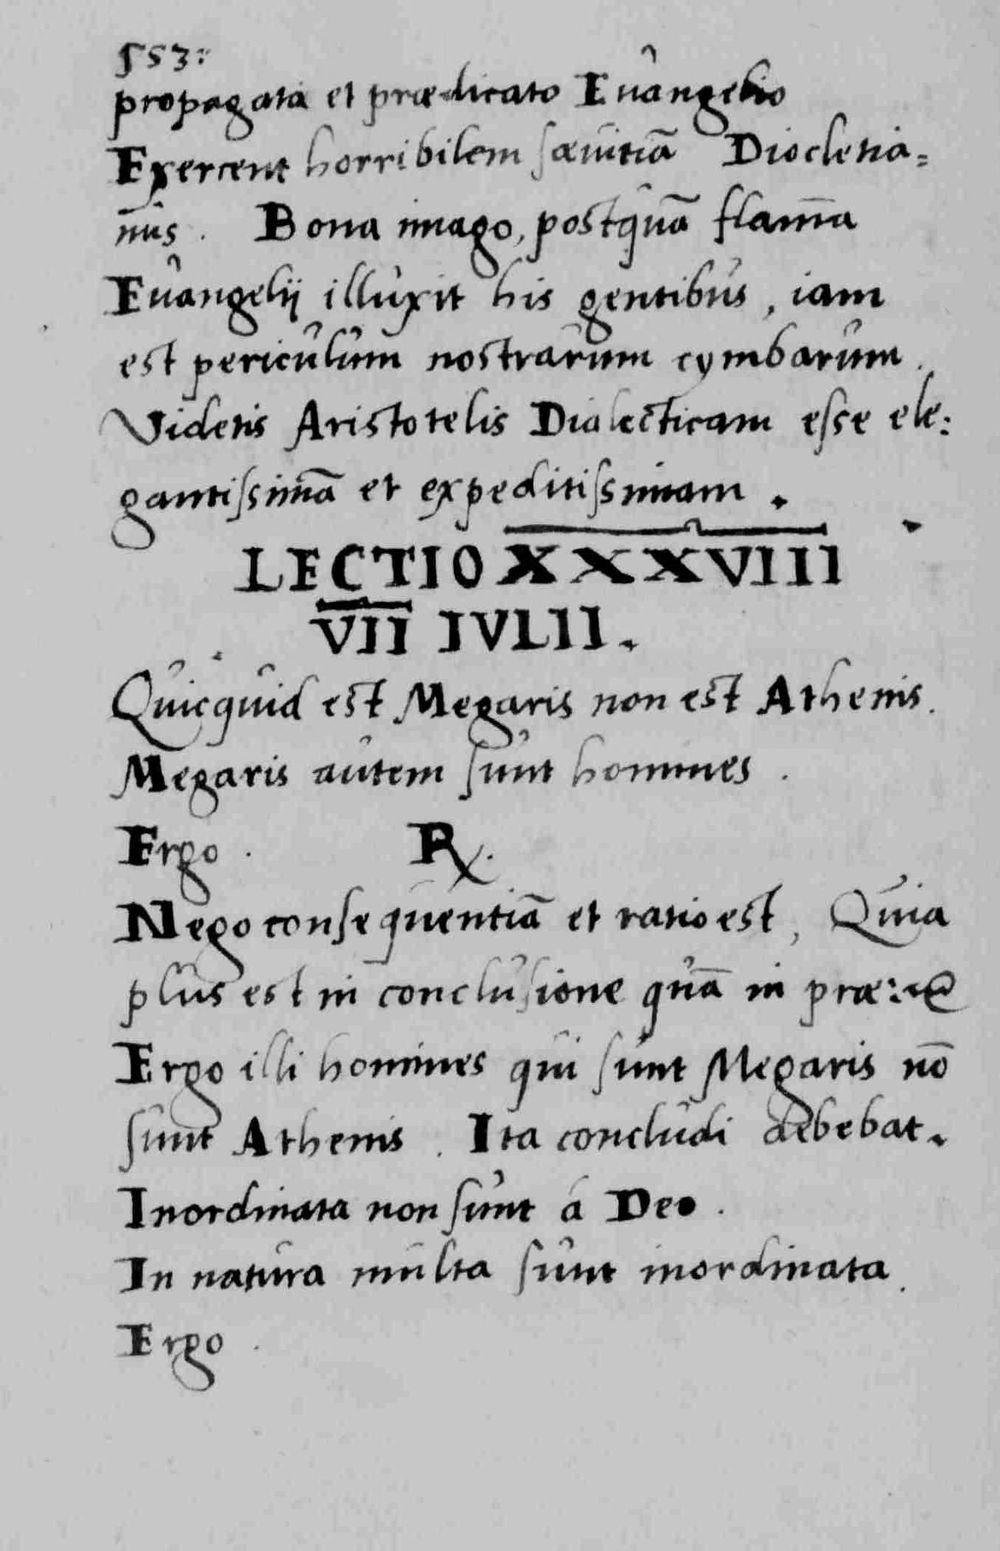 553:
propagata et prædicato Euangelio
Exercent horribilem sæuitiā Diocletia=
nus. Bona imago, postquā flam̄a
Euangelij illuxit his gentibus, iam
est periculum nostrarum cymbarum.
Videtis Aristotelis Dialecticam esse ele:
gantissimā et expeditissimam.
LECTIO XXXVIII
VII IVLII.
Quicquid est Megaris non est Athenis.
Megaris autem sunt homines.
Ergo. ℞.
Nego consequentiā et ratio est, Quia
plus est in conclusione quā in præ:
Ergo illi homines qui sunt Megaris nō
sunt Athenis. Ita concludi debebat.
Inordinata non sunt á Deo.
In natura multa sunt inordinata.
Ergo.